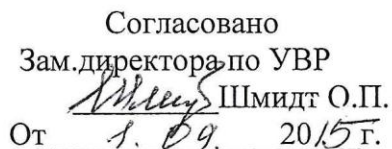 Согласовано
Зам.директора по УВР
Шмидт О.П.
От 1. 09. 2015 г.